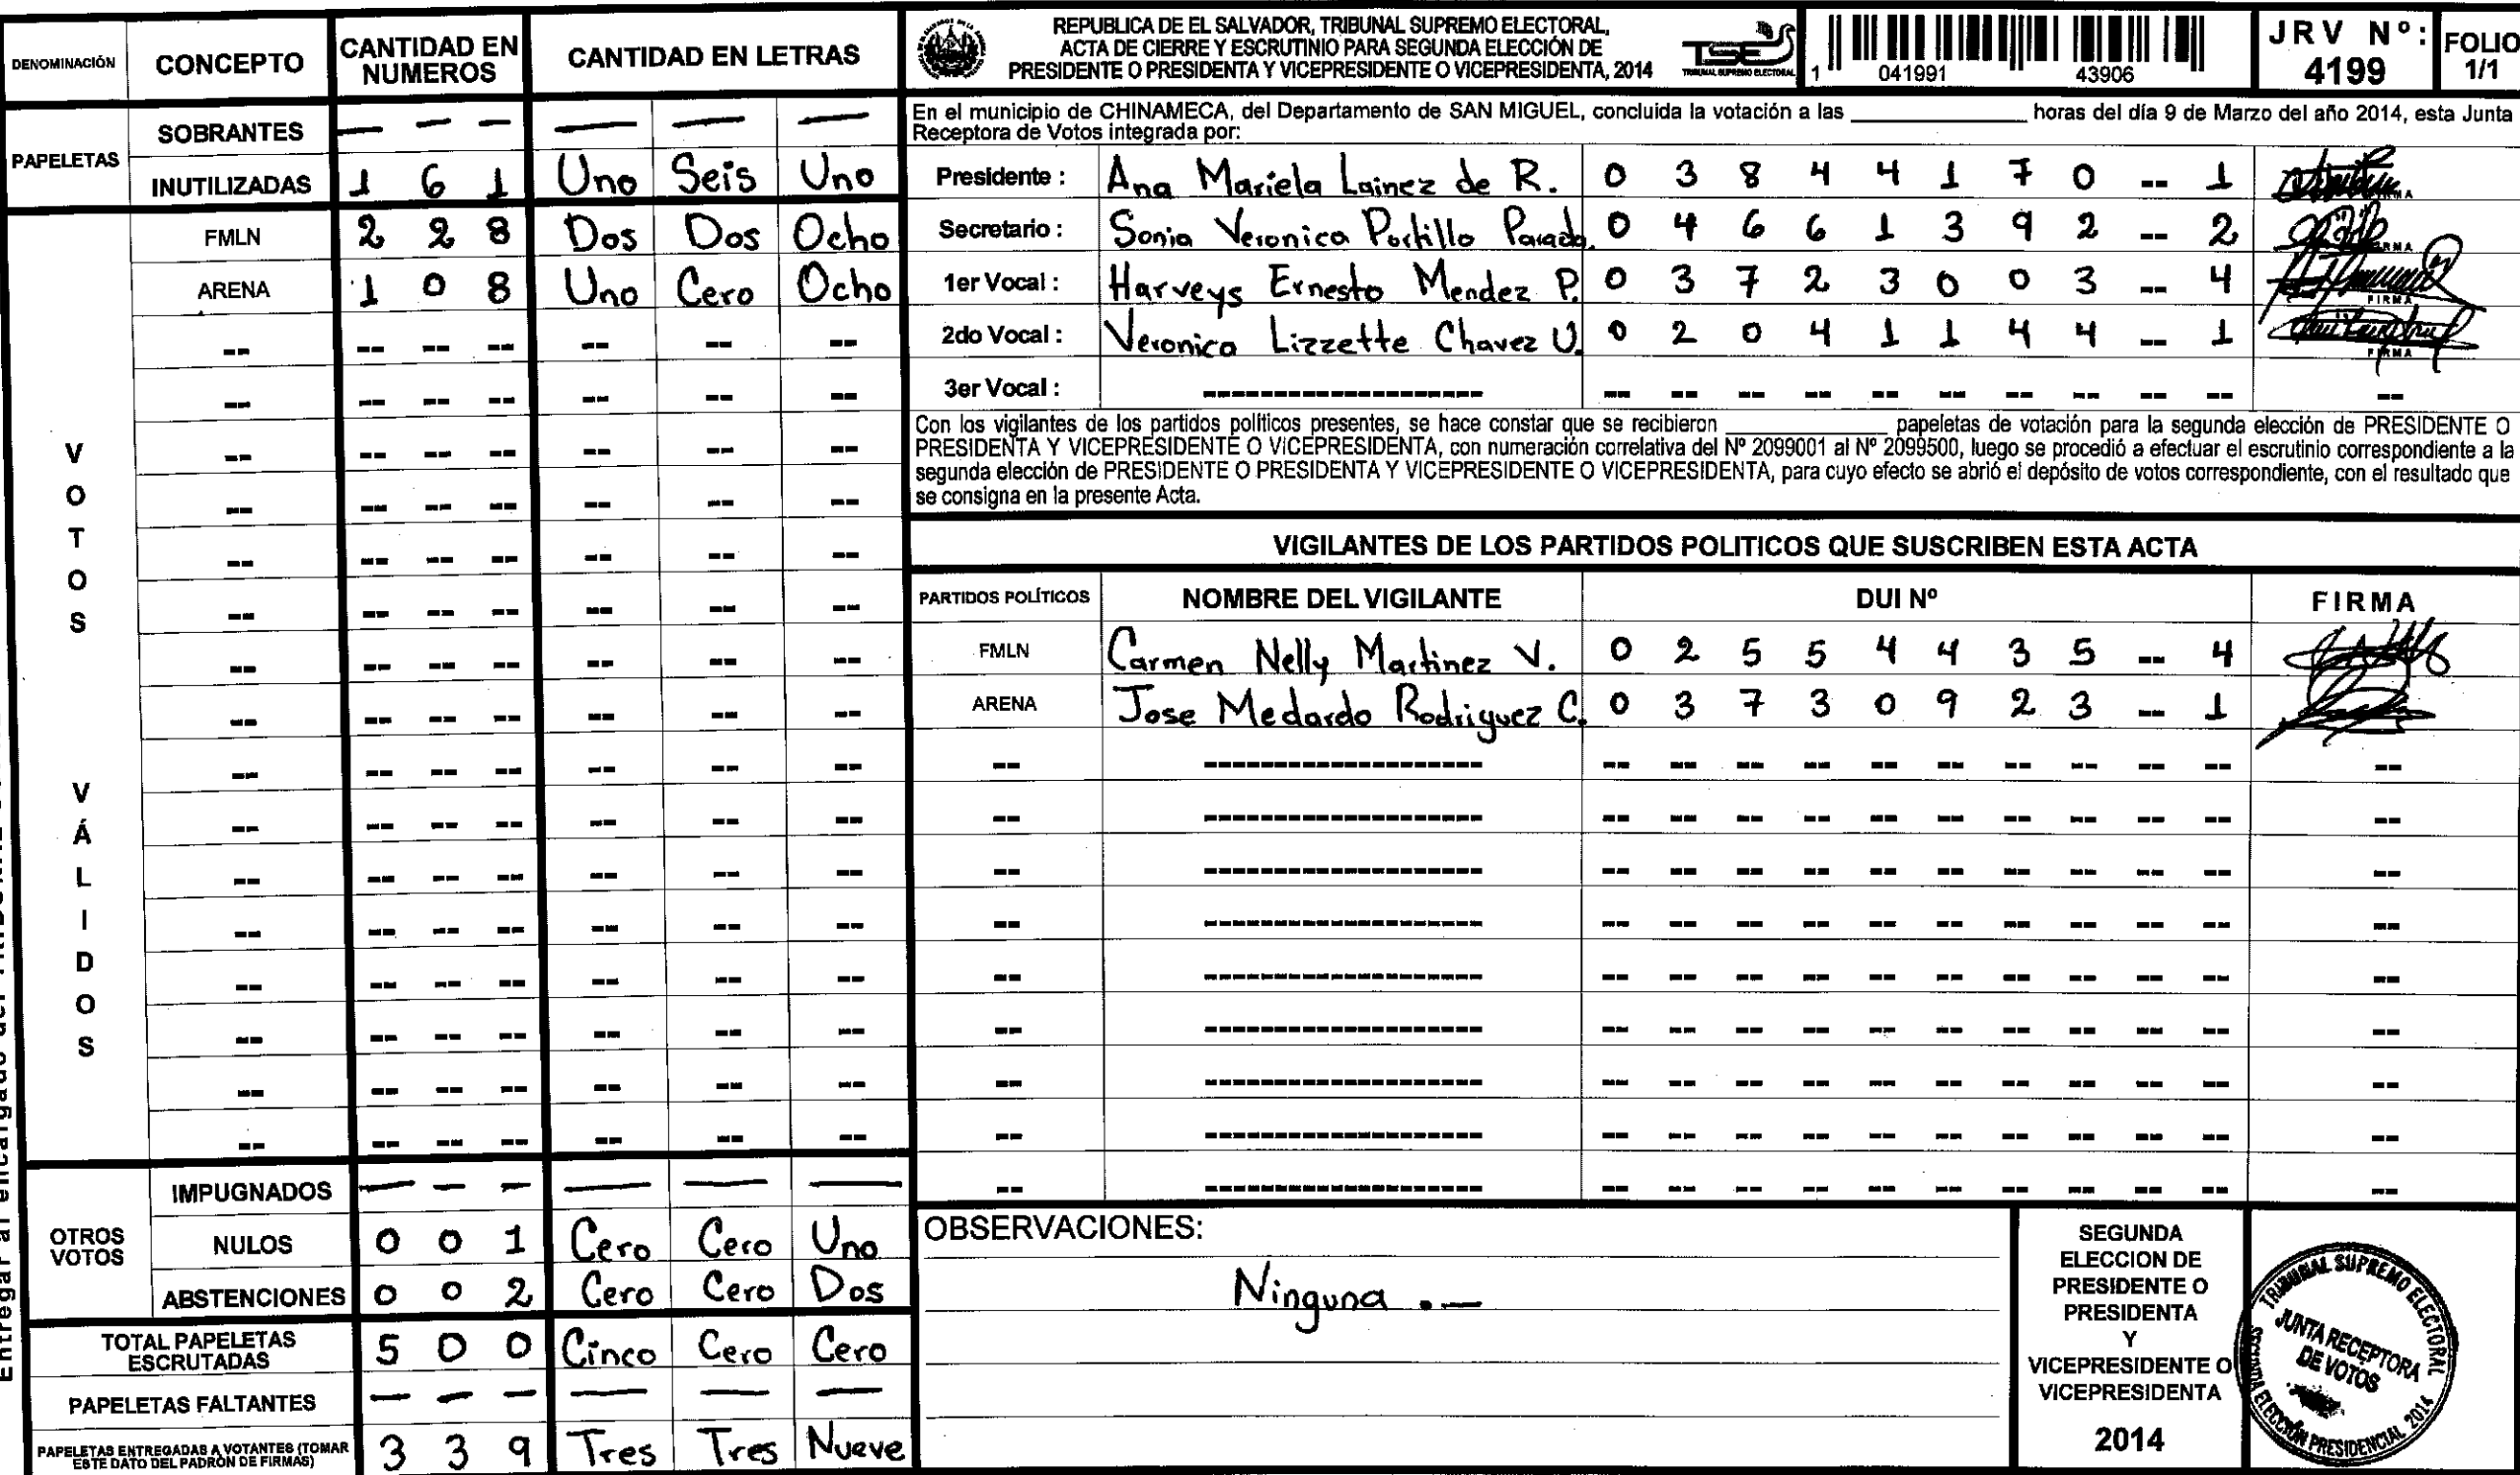 DENOMINACIÓN CONCEPTO CANTIDAD EN NUMEROS CANTIDAD EN LETRAS
PAPELETAS
SOBRANTES — — — — — —
INUTILIZADAS 1 6 1 Uno Seis Uno
VOTOS VÁLIDOS
FMLN 2 2 8 Dos Dos Ocho
ARENA 1 0 8 Uno Cero Ocho
OTROS VOTOS
IMPUGNADOS — — — — — —
NULOS 0 0 1 Cero Cero Uno
ABSTENCIONES 0 0 2 Cero Cero Dos
TOTAL PAPELETAS ESCRUTADAS 5 0 0 Cinco Cero Cero
PAPELETAS FALTANTES — — — — — —
PAPELETAS ENTREGADAS A VOTANTES (TOMAR ESTE DATO DEL PADRÓN DE FIRMAS) 3 3 9 Tres Tres Nueve
Entregar al encargado del
REPUBLICA DE EL SALVADOR, TRIBUNAL SUPREMO ELECTORAL,
ACTA DE CIERRE Y ESCRUTINIO PARA SEGUNDA ELECCIÓN DE
PRESIDENTE O PRESIDENTA Y VICEPRESIDENTE O VICEPRESIDENTA, 2014
TSE
TRIBUNAL SUPREMO ELECTORAL
1 041991 43906
JRV Nº: 4199
FOLIO 1/1
En el municipio de CHINAMECA, del Departamento de SAN MIGUEL, concluida la votación a las ________ horas del día 9 de Marzo del año 2014, esta Junta
Receptora de Votos integrada por:
Presidente : Ana Mariela Lainez de R. 0 3 8 4 4 1 7 0 -- 1
Secretario : Sonia Veronica Portillo Parada. 0 4 6 6 1 3 9 2 -- 2
1er Vocal : Harveys Ernesto Mendez P. 0 3 7 2 3 0 0 3 -- 4 FIRMA
2do Vocal : Veronica Lizzette Chavez U. 0 2 0 4 1 1 4 4 -- 1 FIRMA
3er Vocal :
Con los vigilantes de los partidos políticos presentes, se hace constar que se recibieron ________ papeletas de votación para la segunda elección de PRESIDENTE O
PRESIDENTA Y VICEPRESIDENTE O VICEPRESIDENTA, con numeración correlativa del Nº 2099001 al Nº 2099500, luego se procedió a efectuar el escrutinio correspondiente a la
segunda elección de PRESIDENTE O PRESIDENTA Y VICEPRESIDENTE O VICEPRESIDENTA, para cuyo efecto se abrió el depósito de votos correspondiente, con el resultado que
se consigna en la presente Acta.
VIGILANTES DE LOS PARTIDOS POLITICOS QUE SUSCRIBEN ESTA ACTA
PARTIDOS POLÍTICOS NOMBRE DEL VIGILANTE DUI Nº FIRMA
FMLN Carmen Nelly Martinez V. 0 2 5 5 4 4 3 5 -- 4
ARENA Jose Medardo Rodriguez C. 0 3 7 3 0 9 2 3 -- 1
OBSERVACIONES:
Ninguna .—
SEGUNDA
ELECCION DE
PRESIDENTE O
PRESIDENTA
Y
VICEPRESIDENTE O
VICEPRESIDENTA
2014
TRIBUNAL SUPREMO ELECTORAL
JUNTA RECEPTORA
DE VOTOS
SEGUNDA ELECCIÓN PRESIDENCIAL 2014